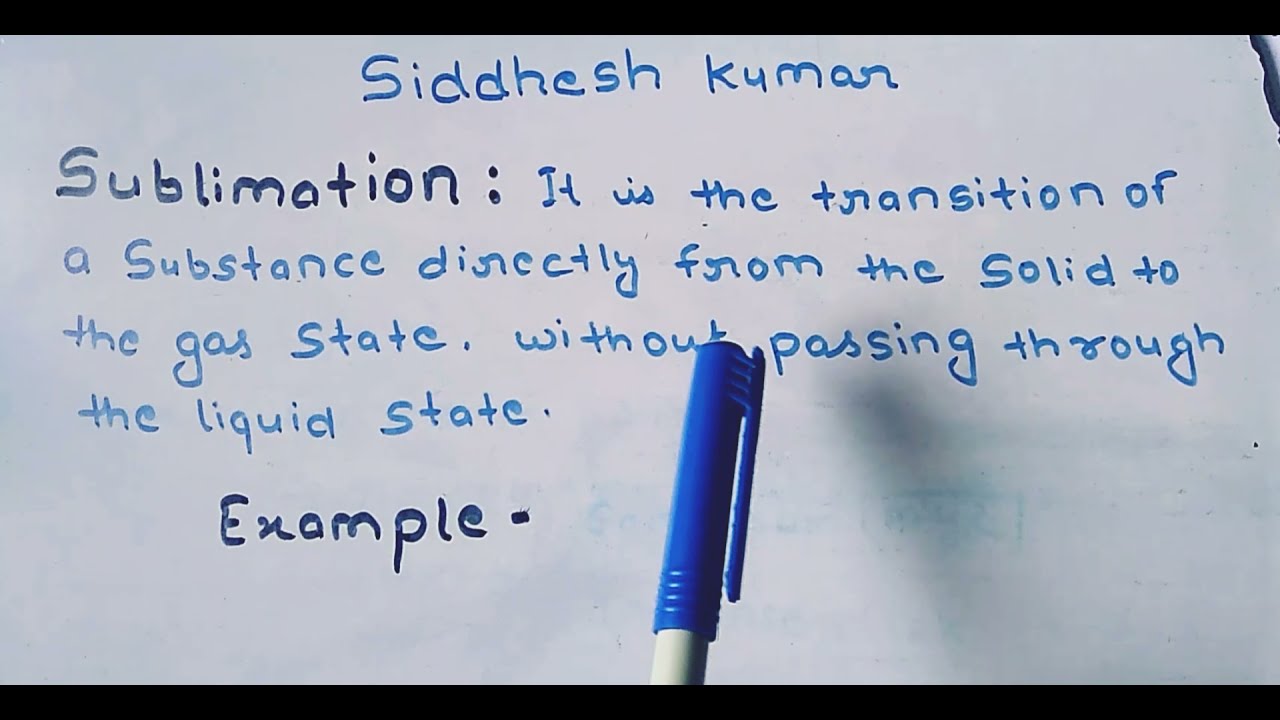 Siddhesh Kumar
Sublimation : It is the transition of
a Substance directly from the Solid to
the gas state. without passing through
the liquid state.
Example -